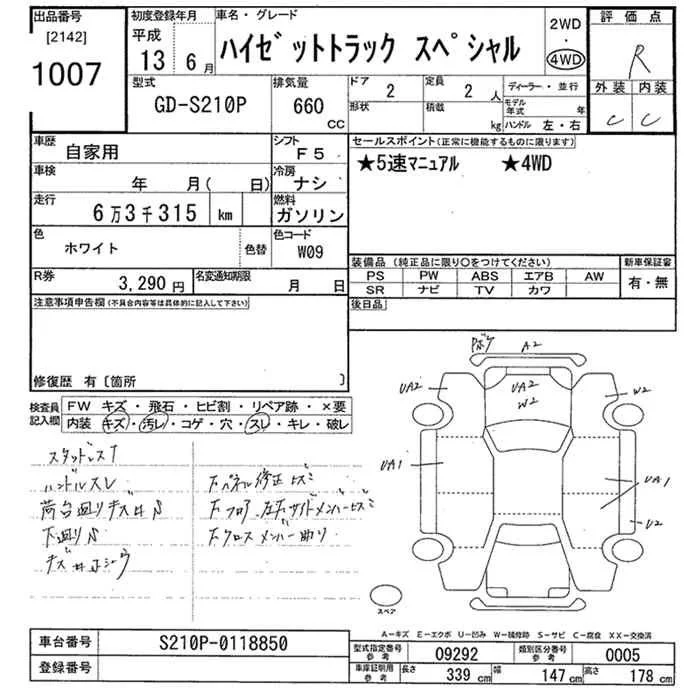 出品番号
[2142]
1007
初度登録年月
平成
13 6月
車名・グレード
ハイゼットトラック スペシャル
2WD
・
4WD
評価点
R
外装 内装
C C
型式
GD-S210P
排気量
660
CC
ドア
2
定員
2 人
形状
積載
kg
ディーラー・並行
モデル年式 年
ハンドル 左・右
車歴
自家用
シフト
F5
車検
年 月( 日)
冷房
ナシ
走行
6万3千315 km
燃料
ガソリン
色
ホワイト
色替
色コード
W09
R券
3,290円
名変通知期限
月 日
セールスポイント(正常に機能するものに限ります)
★5速マニュアル ★4WD
装備品 (純正品に限り○をつけてください)
PS PW ABS エアB AW
SR ナビ TV カワ
新車保証書
有・無
後日品
注意事項申告欄(不具合内容等は具体的に記入して下さい)
修復歴 有〔箇所 〕
検査員記入欄
FW キズ・飛石・ヒビ割・リペア跡・×要
内装 キズ・汚レ・コゲ・穴・スレ・キレ・破レ
スタッドレス
ハンドルスレ
荷台廻りキズ
下廻りS
下クロスメンバー曲り
A2
UA2
UA2
W2
W2
UA1
UA1
U2
スペア
A−キズ E−エクボ U−凹み W−補修跡 S−サビ C−腐食 XX−交換済
車台番号
S210P-0118850
登録番号
型式指定番号
参考
09292
類別区分番号
参考
0005
車庫証明用
参考
長さ
339 cm
幅
147 cm
高さ
178 cm